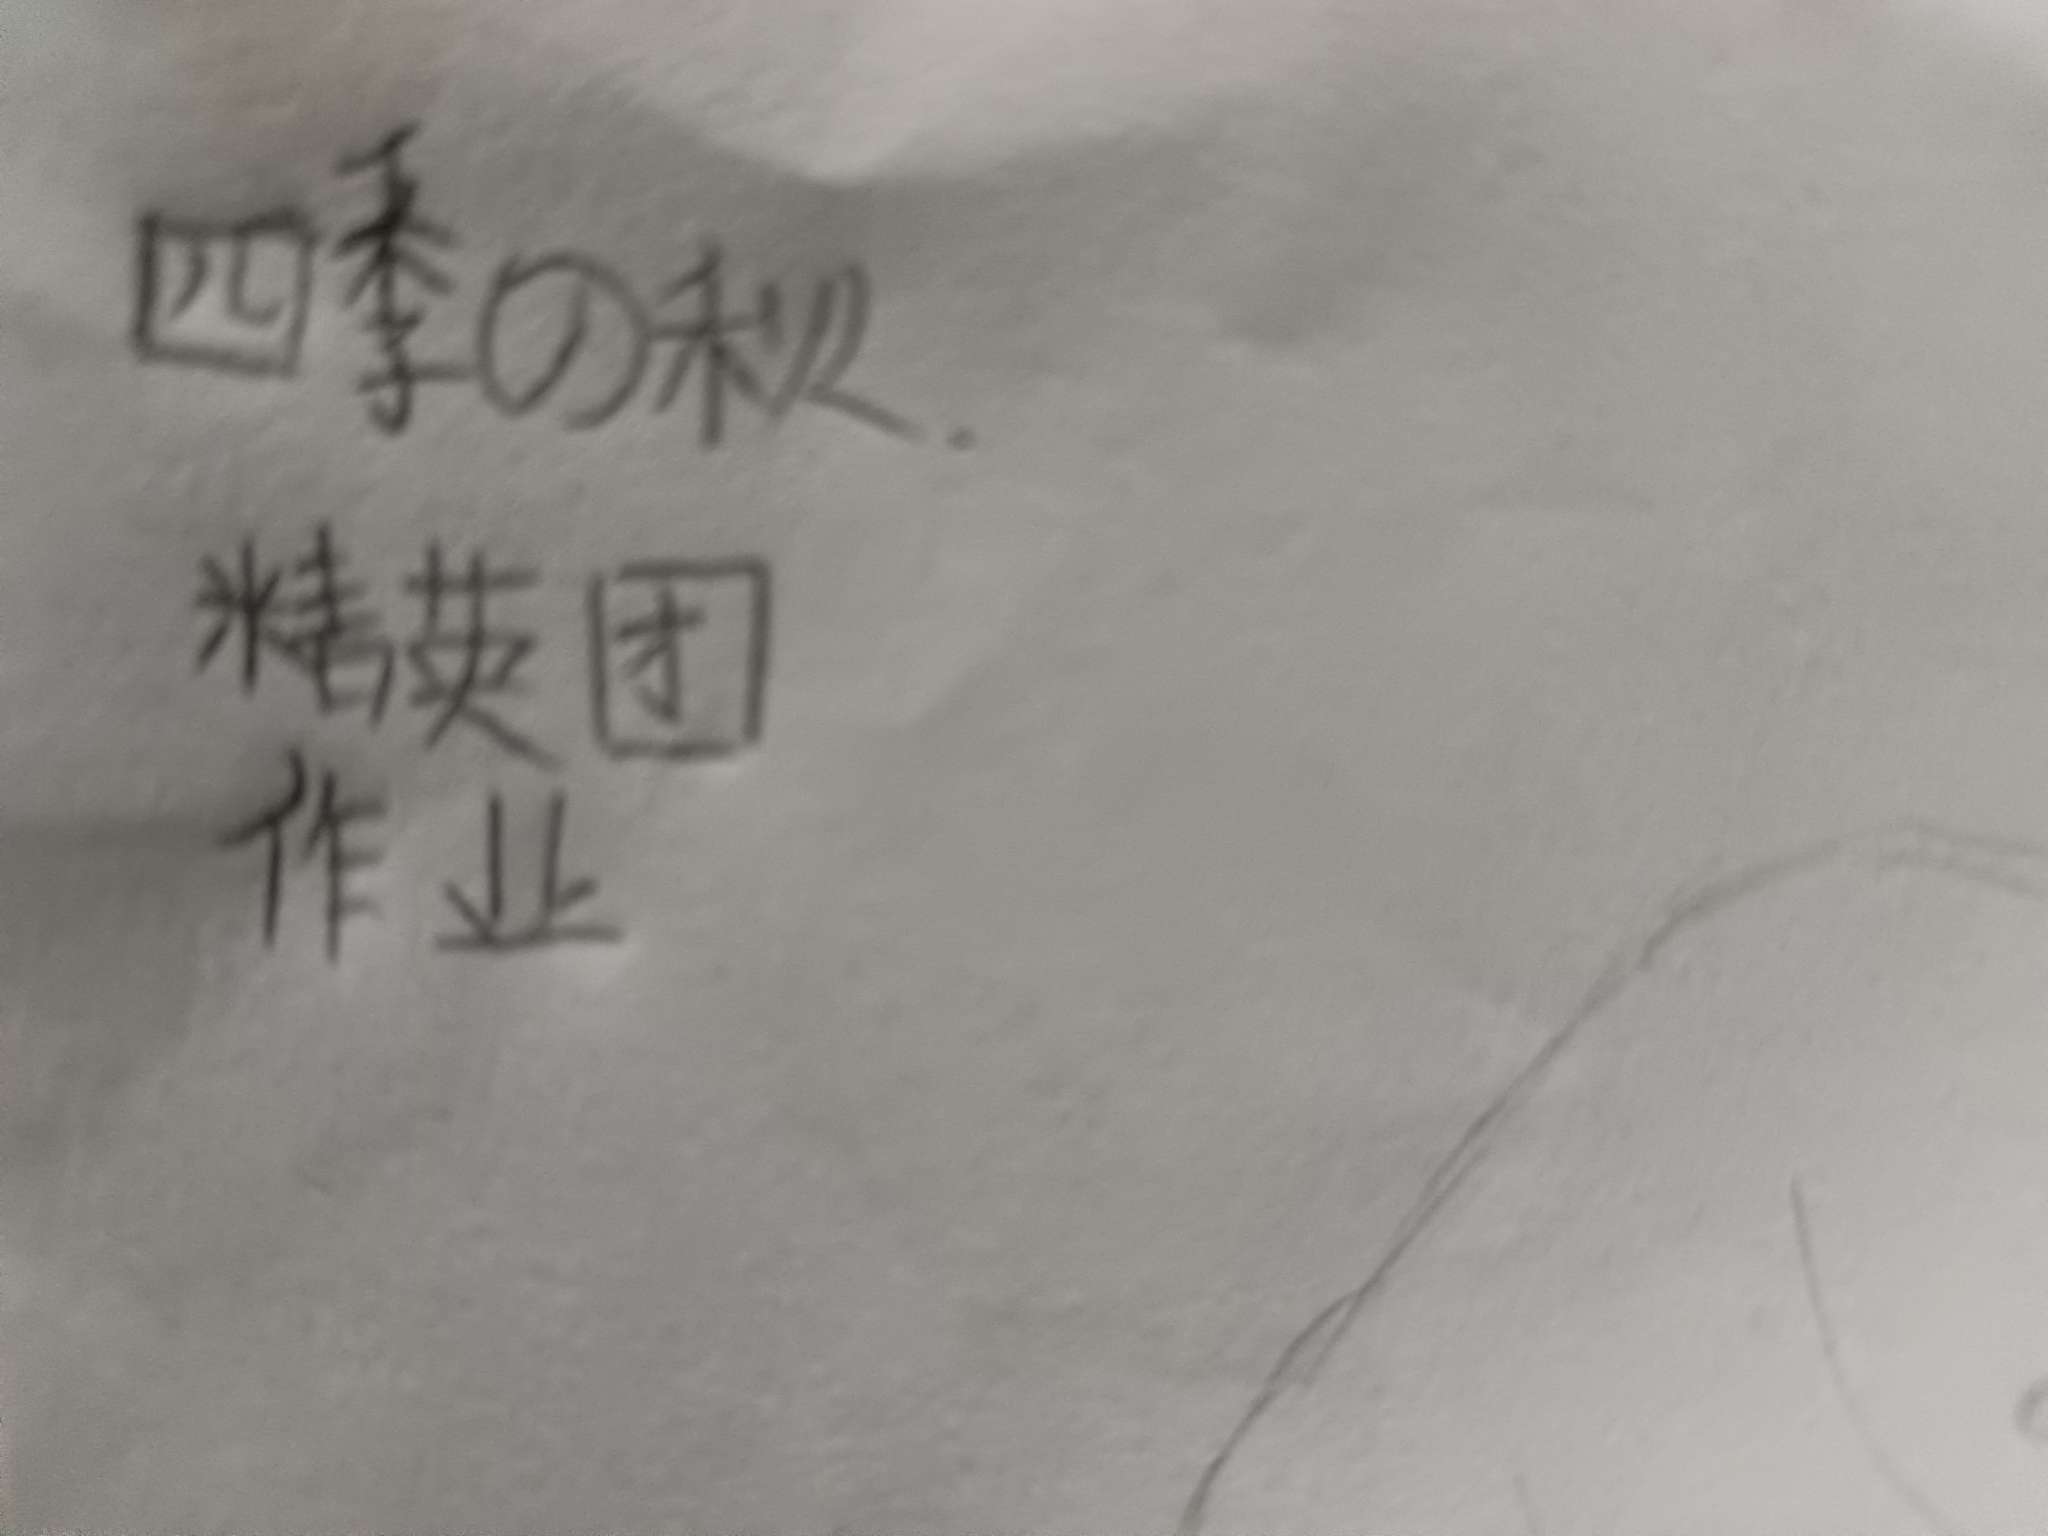 四季の秋.
精英团
作业